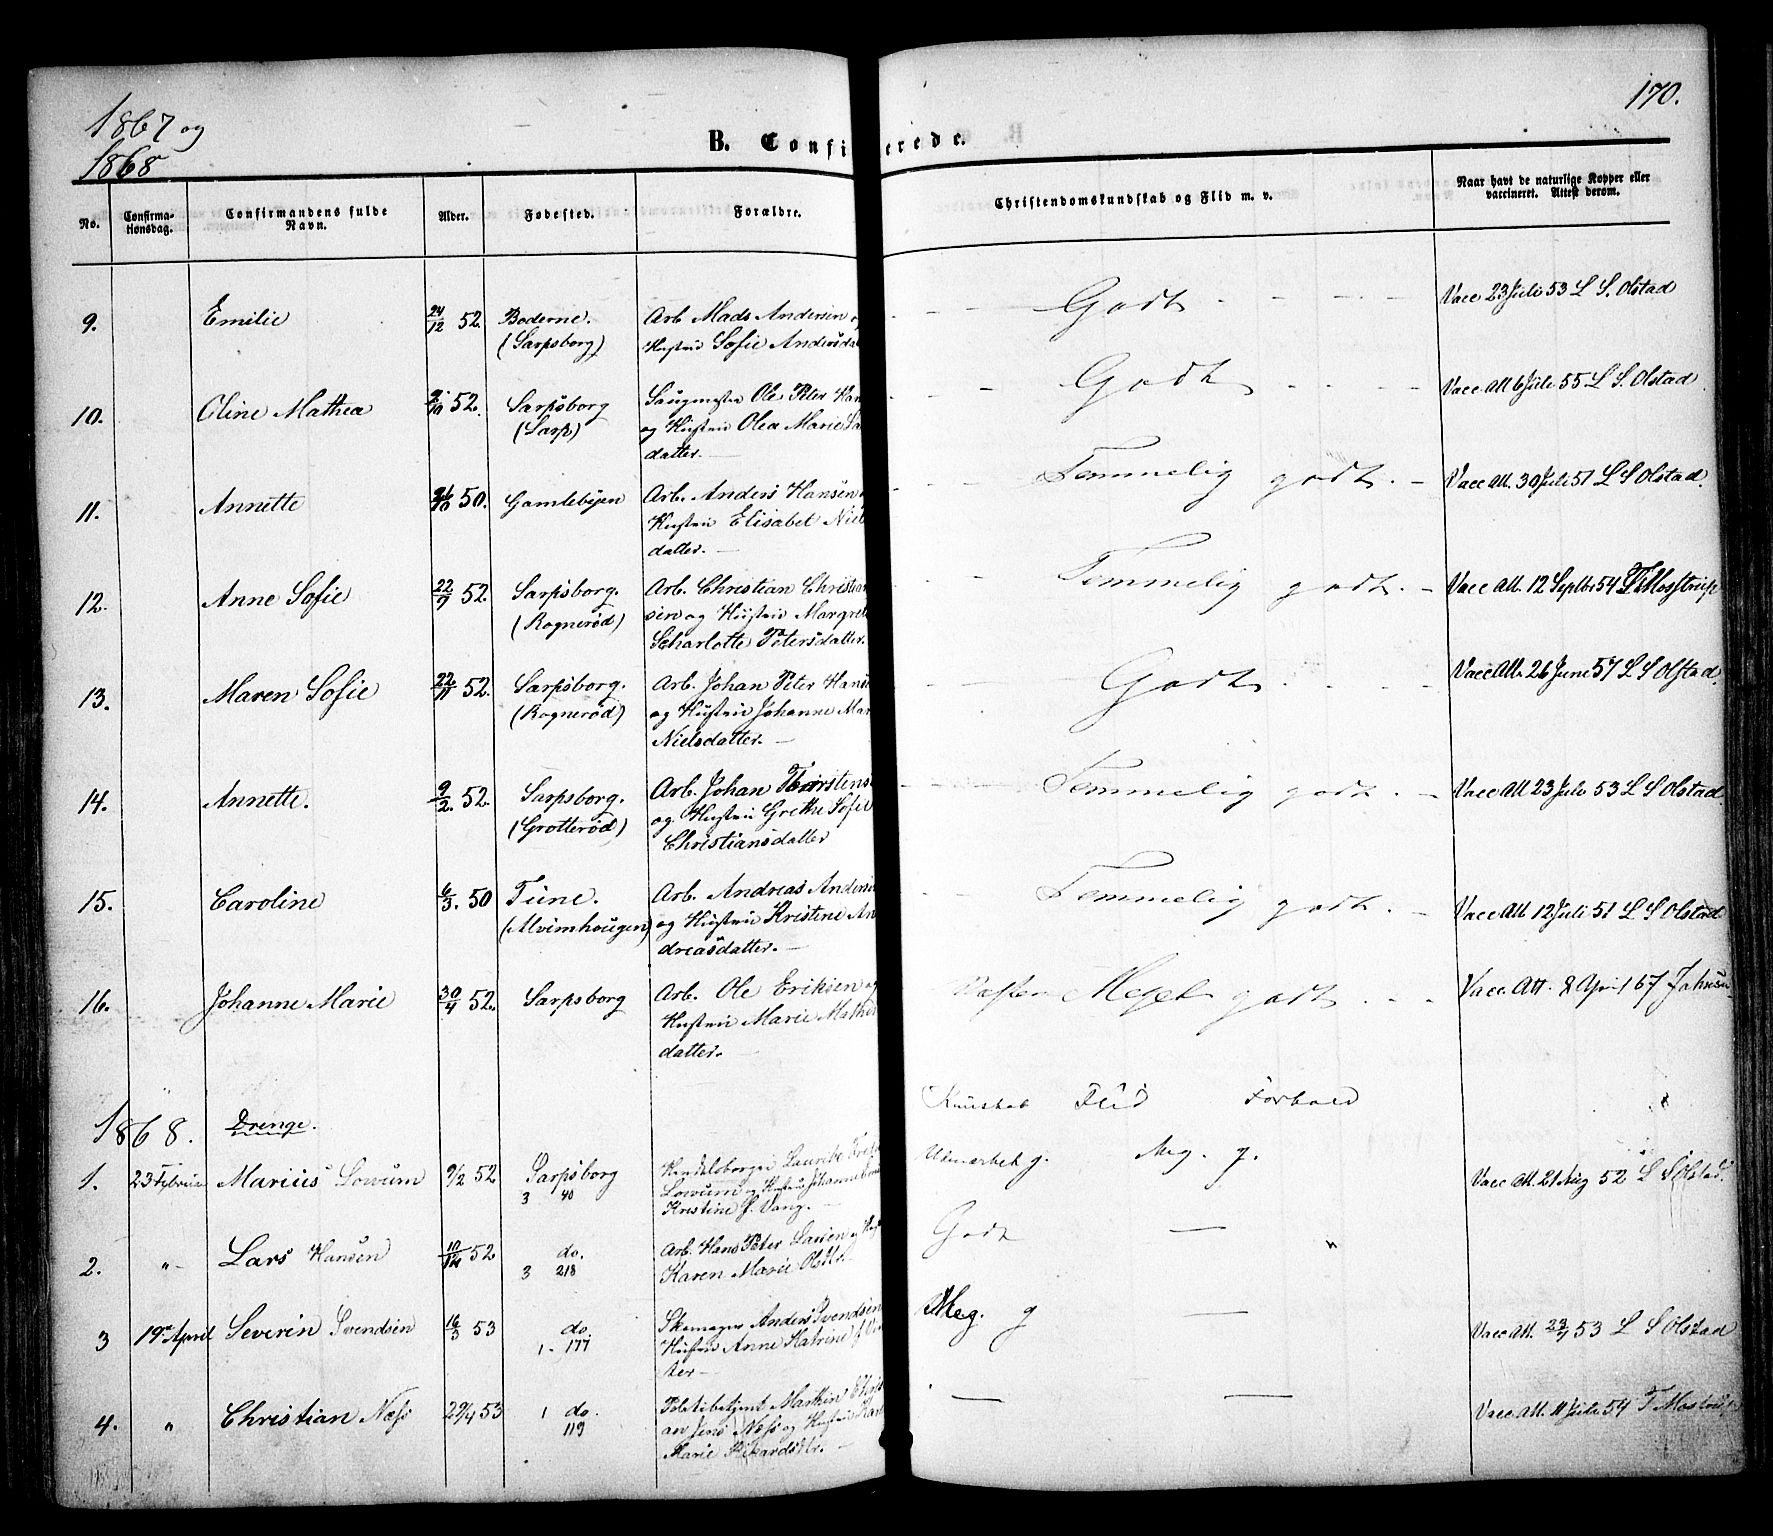 170.
1867 og
1868
B. Confirmerede.
No.
Confirma-
tionsdag.
Confirmandens fulde
Navn.
Alder.
Fødested.
Forældre.
Christendomskundskab og Flid m. v.
Naar havt de naturlige Kopper eller
vaccineret. Attest derom.
9. Emilie 24/12 52. Boderne. Arb. Mads Andersen Godt Vacc 23 Juli 53 L S. Olstad
(Sarpsborg) Hustru Sofie Andersda
10. Oline Mathea 52. Sarpsborg Saugmester Ole Peter Han Godt Vacc Att 6 Juli 55 L S. Olstad
(Sarp) og Hustru Olea Marie La
datter.
11. Annette 50. Gamlebyen Arb. Anders Hansen Temmelig godt. Vacc Att. 30 Juli 51 L S Olstad.
Hustru Elisabet Niels
datter.
12. Anne Sofie 22/9 52. Sarpsborg. Arb. Christian Christian Temmelig godt. Vacc Att. 12 Septbr 54 T Mostrup
(Rognerød) sen og Hustru Margrete
Scharlotte Petersdatter.
13. Maren Sofie 22/11 52. Sarpsborg. Arb. Johan Peter Hans Godt Vacc Att. 26 Juni 57 L S Olstad.
(Rognerød) og Hustru Johanne Mar
Nielsdatter.
14. Annette. 9/2. 52. Sarpsborg. Arb. Johan Thorstens Temmelig godt. Vacc Att 23 Juli 53 L S Olstad
(Grotterød) og Hustru Grethe Sofie
Christiansdatter
15. Caroline 6/3. 50 Tune. Arb. Andreas Anders Temmelig godt. Vacc Att 12 Juli 51 L S Olstad
(Alvimhougen) og Hustru Kristine An
dreasdatter.
16. Johanne Marie 30/4 52. Sarpsborg Arb. Ole Eriksen og Næsten Meget godt Vacc. Att. 8 April 67 Jahnsen
Hustru Marie Mathis
datter.
1868. Drenge. Kundskab Flid Forhold
1. 23 Februar Marius Lowum 9/2 52 Sarpsborg Handelsborger Lauritz Udmærket g. Meg. g. Vacc Att. 21 Aug 52 L S Olstad.
3 40 Lowum og Hustru Johanne
Kristine f. Vang.
2. " Lars Hansen 10/12 52 do. Arb. Hans Peter Larsen og Godt — "
3 218 Karen Marie Olsdtr.
3 19de April Severin Svendsen 16/3 53 do. Skomager Anders Svendsen Meg. g — Vacc Att. 53 L S Olstad
1. 177. Hustru Anne Katrine f.
ter
4. " Christian Næss 29/4 53 1 do. Politibetjent Mathias — — Vacc Att. 11 Juli 54 T Mostrup
119 an Jens Næss og Hustru Kar
Marie Rikardsdtr.